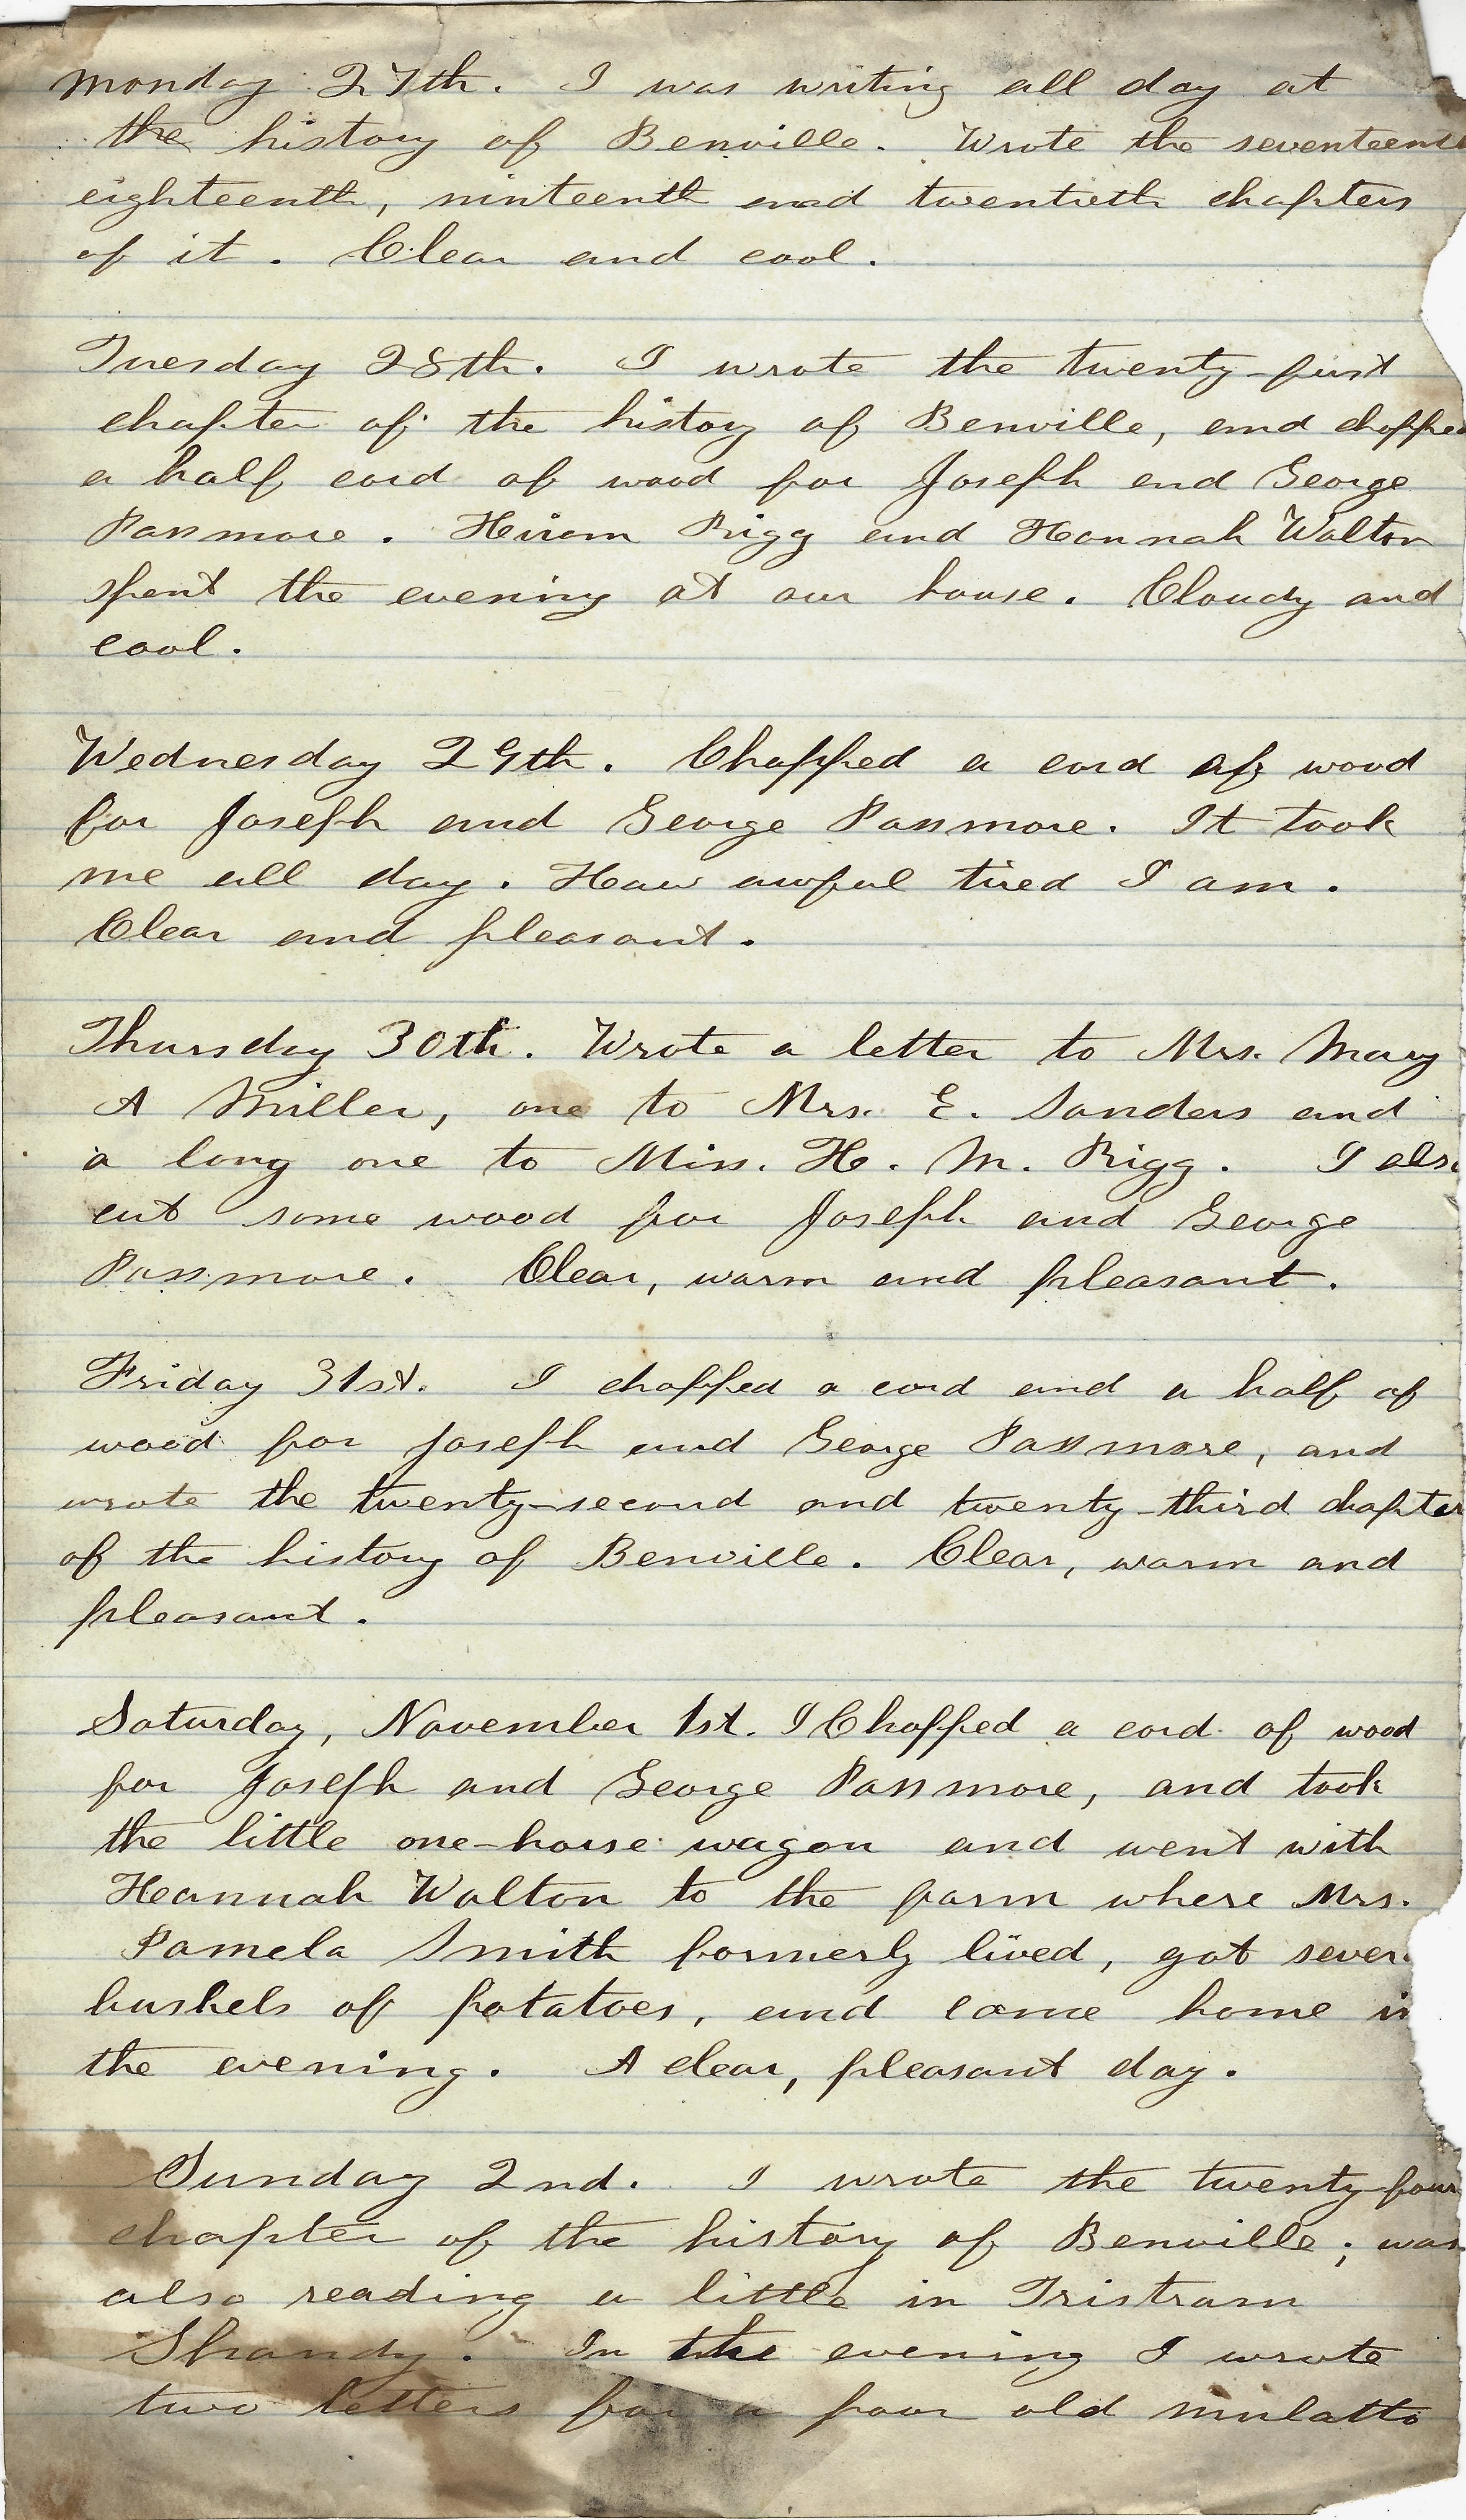 Monday 27th. I was writing all day at
the history of Benville. Wrote the seventeenth
eighteenth, ninteenth and twentieth chapters
of it. Clear and cool.
Tuesday 28th. I wrote the twenty-first
chapter of the history of Benville, and chopped
a half cord of wood for Joseph and George
Passmore. Hiram Rigg and Hannah Walton
spent the evening at our house. Cloudy and
cool.
Wednesday 29th. Chopped a cord of wood
for Joseph and George Passmore. It took
me all day. How awful tired I am.
Clear and pleasant.
Thursday 30th. Wrote a letter to Mrs. Mary
A Miller, one to Mrs. E. Sanders and
a long one to Miss. H. M. Rigg. I also
cut some wood for Joseph and George
Passmore. Clear, warm and pleasant.
Friday 31st. I chopped a cord and a half of
wood for Joseph and George Passmore, and
wrote the twenty-second and twenty-third chapter
of the history of Benville. Clear, warm and
pleasant.
Saturday, November 1st. I Chopped a cord of wood
for Joseph and George Passmore, and took
the little one-horse wagon and went with
Heannah Walton to the farm where Mrs.
Pamela Smith formerly lived, got seven
bushels of potatoes, and came home in
the evening. A clear, pleasant day.
Sunday 2nd. I wrote the twenty-four
chapter of the history of Benville; was
also reading a little in Tristram
Shandy. In the evening I wrote
two letters for a poor old mulatto